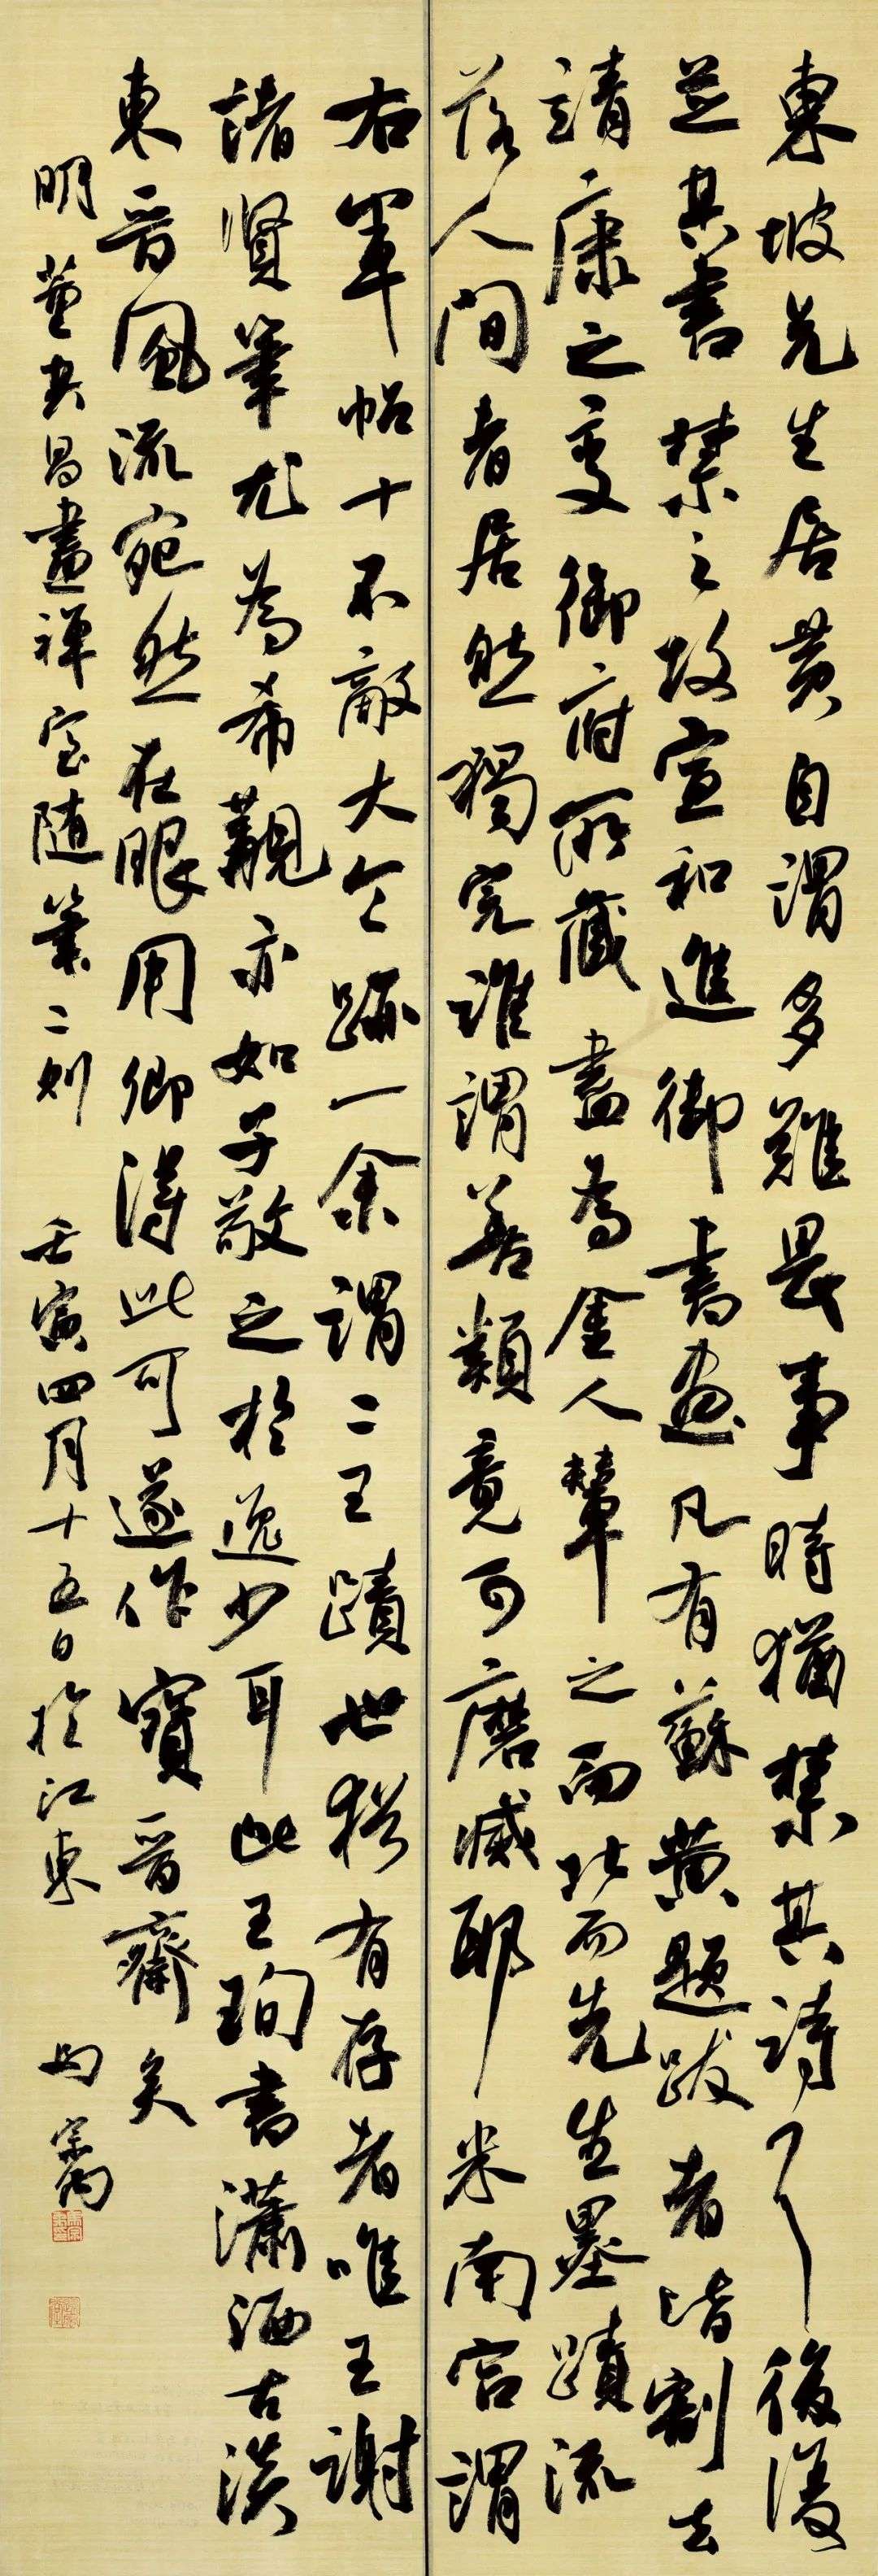 東坡先生居黃自謂多難畏事時猶禁其詩了後復
並其書禁之故宣和進御書畫凡有蘇黃題跋者皆割去
靖康之變御府所藏盡為金人輦之而北而先生墨蹟流
落人間者居然獨完誰謂善類竟可磨滅耶米南宮謂
右軍帖十不敵大令跡一余謂二王蹟世猶有存者唯王謝
諸賢筆尤為希覯亦如子敬之於逸少耳此王珣書瀟洒古淡
東晉風流宛然在眼用卿得此可遂作寶晉齋矣
明董其昌畫禪室隨筆二則 壬寅四月十五日於江東